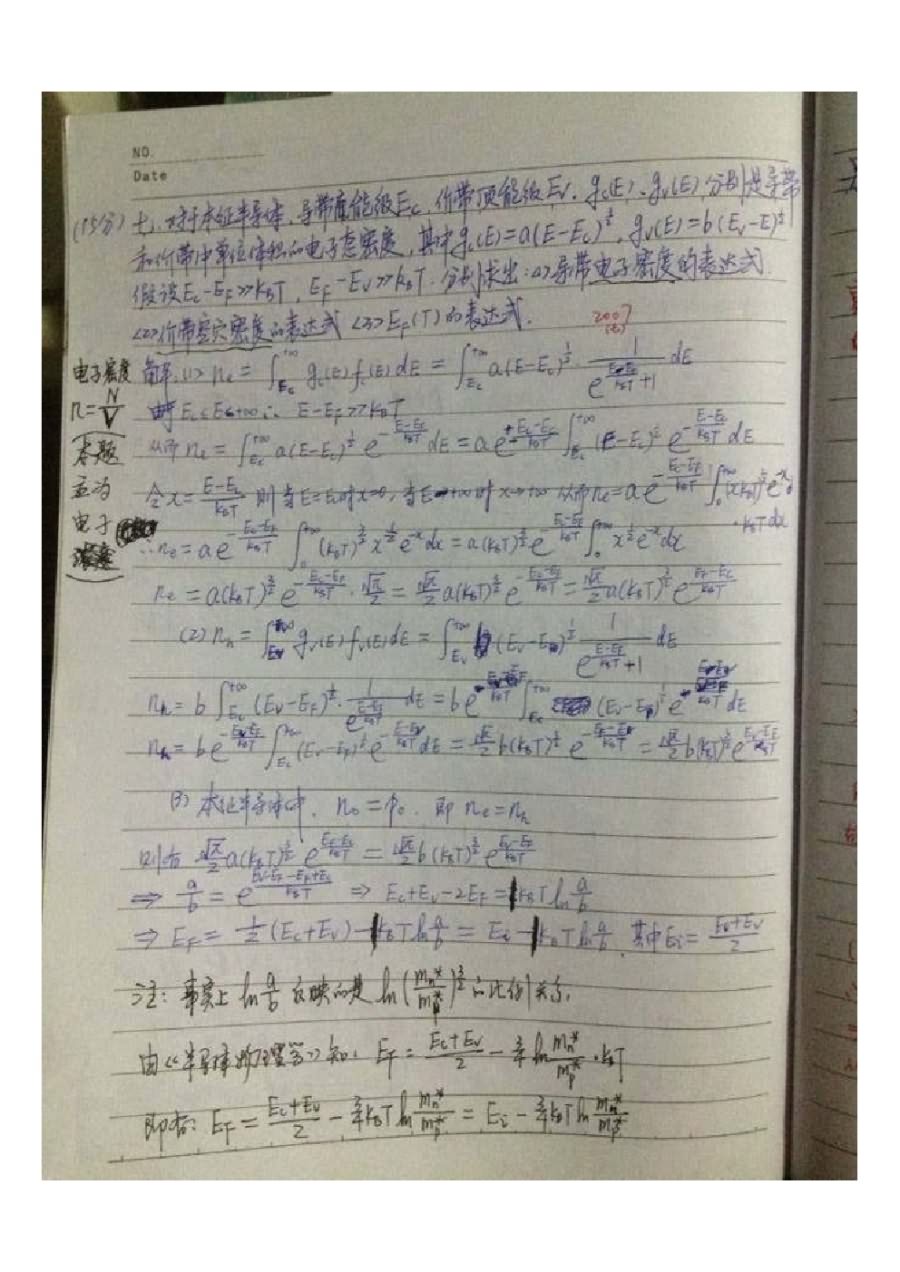 NO.
Date
(15分) 七、对于本征半导体,导带底能级Ec,价带顶能级Ev. gc(E)、gv(E)分别是导带
和价带中单位体积的电子态密度,其中gc(E)=a(E-Ec)^{1/2}, gv(E)=b(Ev-E)^{1/2}
假设Ec-EF>>kBT, EF-Ev>>kBT. 分别求出:(1)导带电子密度的表达式
(2)价带空穴密度的表达式 (3) EF(T)的表达式.
2007
电子密度
n=N/V
本题
应为
电子
解: (1) ne = ∫_{Ec}^{+∞} gc(E) fc(E) dE = ∫_{Ec}^{+∞} a(E-Ec)^{1/2} · 1/(e^{(E-EF)/kBT}+1) dE
由于 Ec≤E<+∞ ∴ E-EF>>kBT
从而 ne = ∫_{Ec}^{+∞} a(E-Ec)^{1/2} e^{-(E-EF)/kBT} dE = a e^{-(Ec-EF)/kBT} ∫_{Ec}^{+∞} (E-Ec)^{1/2} e^{-(E-Ec)/kBT} dE
令 x = (E-Ec)/kBT 则当E=Ec时x=0, 当E→+∞时x→+∞ 从而ne=a e^{-(Ec-EF)/kBT} ∫_0^{+∞} (xkBT)^{1/2} e^{-x}
·kBT dx
∴ ne = a e^{-(Ec-EF)/kBT} ∫_0^{+∞} (kBT)^{3/2} x^{1/2} e^{-x} dx = a(kBT)^{3/2} e^{-(Ec-EF)/kBT} ∫_0^{+∞} x^{1/2} e^{-x} dx
ne = a(kBT)^{3/2} e^{-(Ec-EF)/kBT} · √π/2 = √π/2 a(kBT)^{3/2} e^{-(Ec-EF)/kBT} = √π/2 a(kBT)^{3/2} e^{(EF-Ec)/kBT}
(2) nh = ∫_{Ev}^{+∞} gv(E) fv(E) dE = ∫_{Ev}^{+∞} b(Ev-E)^{1/2} 1/(e^{(E-EF)/kBT}+1) dE
nh = b ∫_{Ec}^{+∞} (Ev-EF)^{1/2} · dE = b e ∫_{Ec}^{+∞} dE
nh = b e ∫_{Ec}^{+∞} dE = √π/2 b(kBT)^{3/2} e = √π/2 b(kBT)^{3/2} e^{(Ev-EF)/kBT}
(3) 本征半导体中, n0 = p0. 即 ne = nh
则有 √π/2 a(kBT)^{3/2} e^{(EF-Ec)/kBT} = √π/2 b(kBT)^{3/2} e^{(Ev-EF)/kBT}
⇒ a/b = e^{(Ev-EF-EF+Ec)/kBT} ⇒ Ec+Ev-2EF = kBT ln a/b
⇒ EF = 1/2 (Ec+Ev) - kBT ln a/b = Ei - kBT ln a/b, 其中Ei = (Ec+Ev)/2
注: 事实上 ln a/b 反映的是 ln (mn*/mp*)^{3/2} 的比例关系.
由《半导体物理学》知: EF = (Ec+Ev)/2 - 3/4 ln mn*/mp* · kBT
即有: EF = (Ec+Ev)/2 - 3/4 kBT ln mn*/mp* = Ei - 3/4 kBT ln mn*/mp*